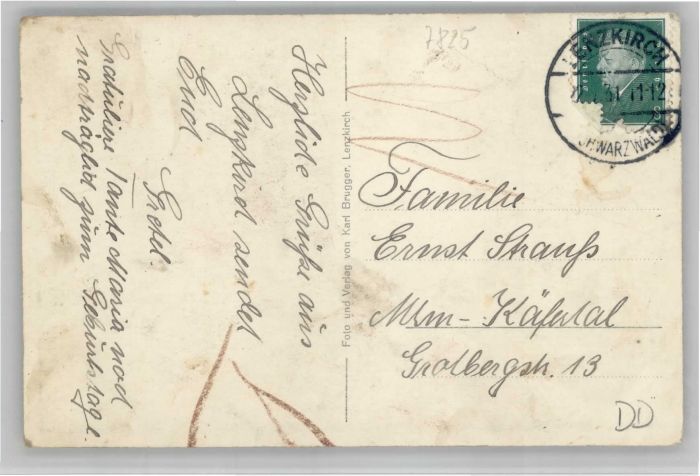 Herzliche Grüße aus
Lenzkirch sendet
Euch
Gretel.
Gratuliere Tante Maria noch
nachträglich zum Geburtstage.
Foto und Verlag von Karl Brugger, Lenzkirch
7825
LENZKIRCH
31 11-12
SCHWARZWALD
Familie
Ernst Strauß
Mhm-Käfertal
Grolbergstr. 13
DD